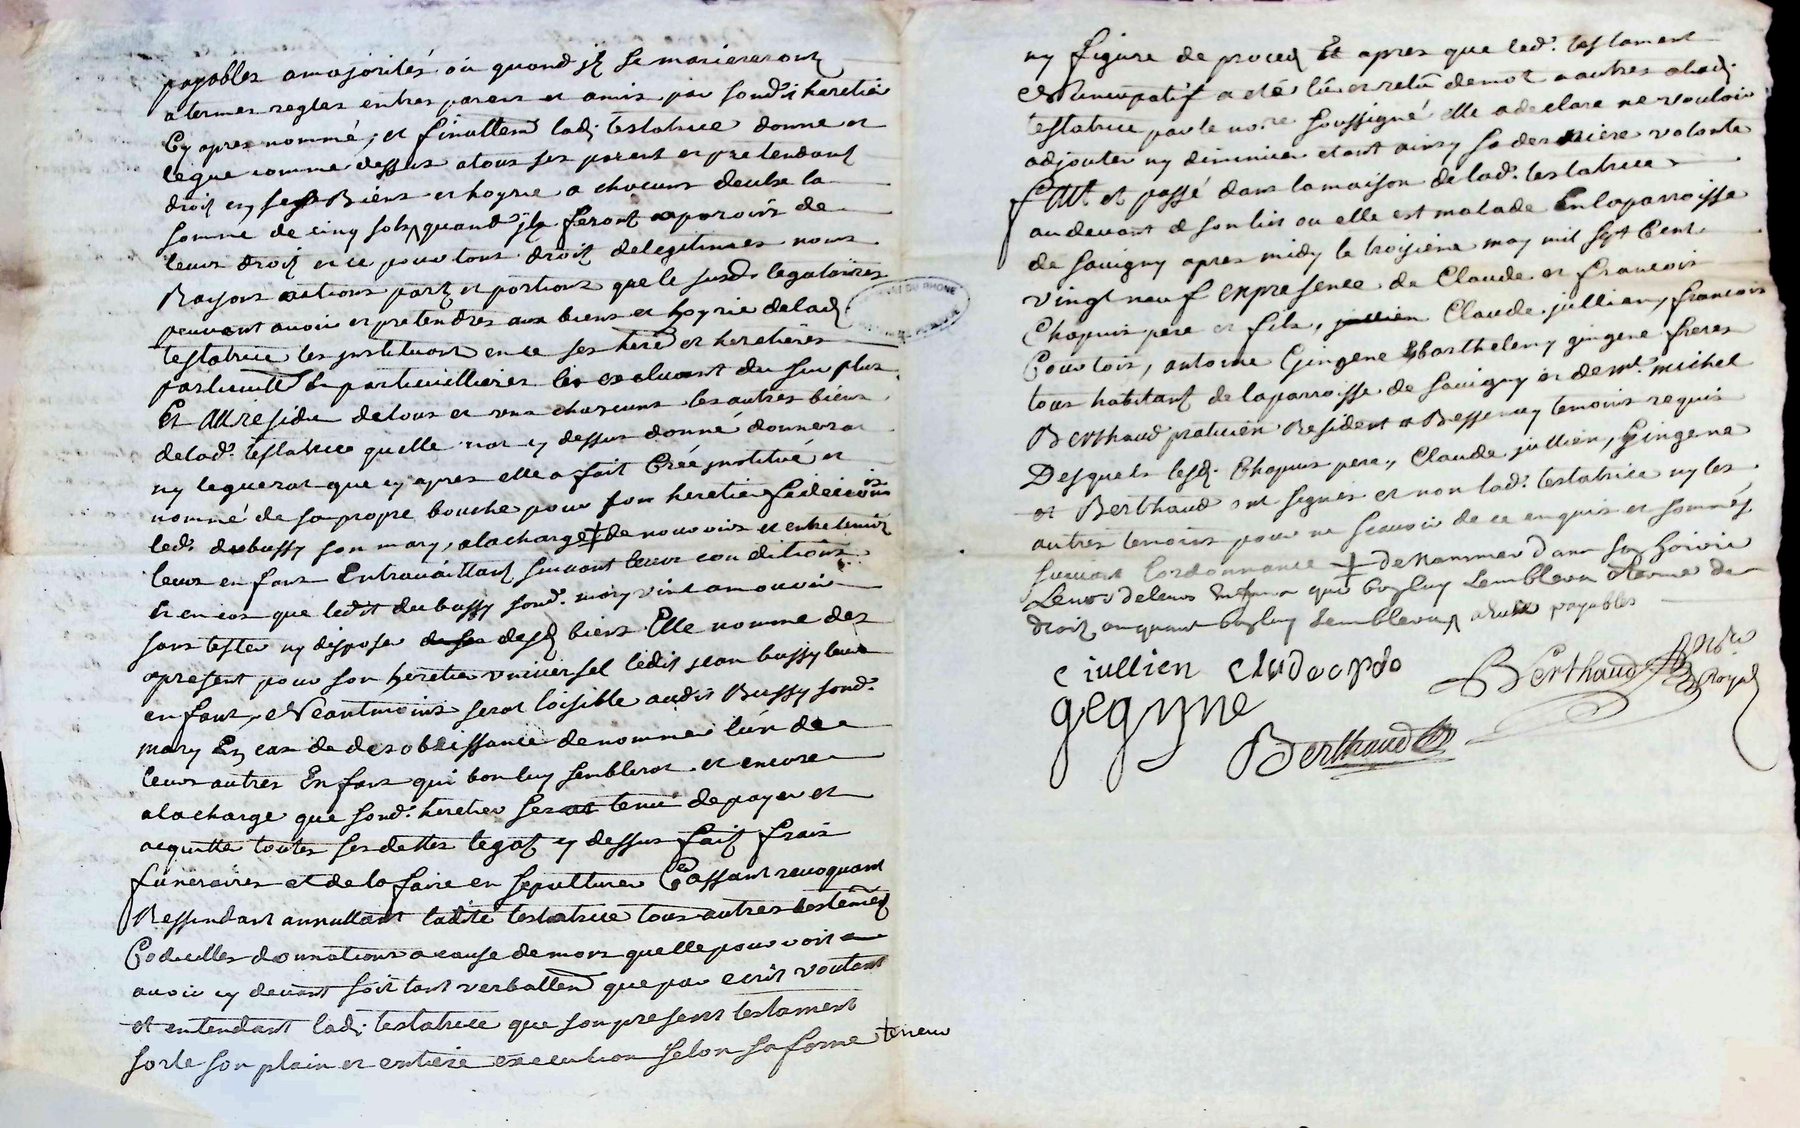 payables a majorités ou quand jlz se marieront
a termes regles entres parens et amis par sond.t heretié
Cy apres nommé, et finallem.t lad. testatrice donne et
legue comme dessus a tous ses parent et pretendant
droit en ses Biens et hoyrie a chacuns deulx la
somme de cinq sols quand jlz feront aparoir de
leurs droit et ce pour tous droit de legitimes noms
Raisons actions parts et portions que le susd. legataires
peuvent avoir et pretendres aux biens et hoyrie de lad.
testatrice les jnstituant en ce ses here et heretieres
particuill et particuillieres les excluant du surplus
Et Au residu de tous et uns chacuns les autres biens
de lad. testatrice quelle nat cy dessus donné donnerat
ny leguerat que cy apres elle a fait Créé jnstitué et
nommé de sa propre bouche pour son heretier fideicomis
led. dubussy son mary, a la charge + de nourrir et entretenir
leurs enfans En travaillant suivant leurs conditions
Et en cas que ledit dubussy sond. mary vint a mourir
sans tester ny disposer de ses desd. biens Elle nomme des
apresent pour son heretier universel ledit jean bussy leur
enfant, Neantmoins serat loisible audit Bussy sond.
mary En cas de desobeissance de nommer lun de
leurs autres Enfans qui bon luy semblerat et encore
a la charge que sond. heretier serat tenu de payer et
acquitter toutes ses dettes legatz cy dessus faitz frais
funeraires et de la faire en sepulturer Cassant revoquant
Ressindant annullant ladite testatrice tous autres testemens
Codicilles donnations a cause de mort quelle pourroit
avoir cy devant fait tant verballem.t que par ecrit voulant
et entendant lad. testatrice que son present testament
sorte son plain et entiere execution selon sa forme teneur
ny figure de proces Et apres que led. testament
Nuncupatif a eté lü et relü de mot a autres a lad.
testatrice par le no.re soussigné elle a declare ne vouloir
adjouter ny diminuer etant ainsy sa derniere volonté
Fait et passé dans la maison de lad. testatrice
au devant de son lit ou elle est malade En la parroisse
de savigny apres midy le troisiéme may mil sept Cent
vingt neuf en presence de Claude et francois
Chapuis pere et fils, Claude jullien, francois
Courtois, antoine Gingene Barthelemy gingene freres
tous habitant de la parroisse de savigny et de m.e michel
Berthaud praticien Resident a Bessenay temoins requis
Desquels lesd. Chapuis pere, Claude jullien, Gingene
et Berthaud ont signés et non lad. testatrice ny les
autres temoins pour ne scavoir de ce enquis et sommés
suivant Lordonnance + de nommer dans son hoirie
Lenvs de leurs enfans qui bon luy semblera
droit ou quant bon luy semblera payables
c iullien
gegyne
Berthaud
Berthaud no.re Royal